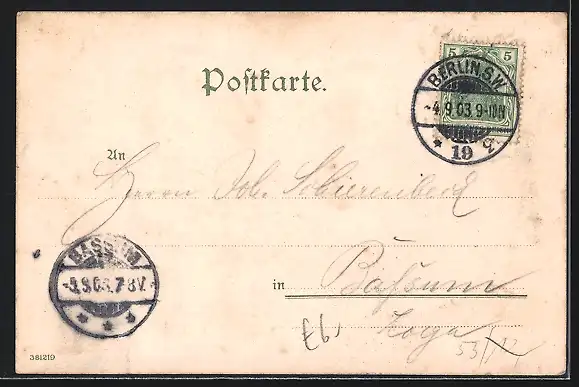 5 5
BERLIN S.W.
-4.9.03.9-10N
* 19 q
Postkarte.
An
Herrn Joh. Schierenbeck
BASSUM
-5.9.03.7-8V.
* * *
in Bassum
381219